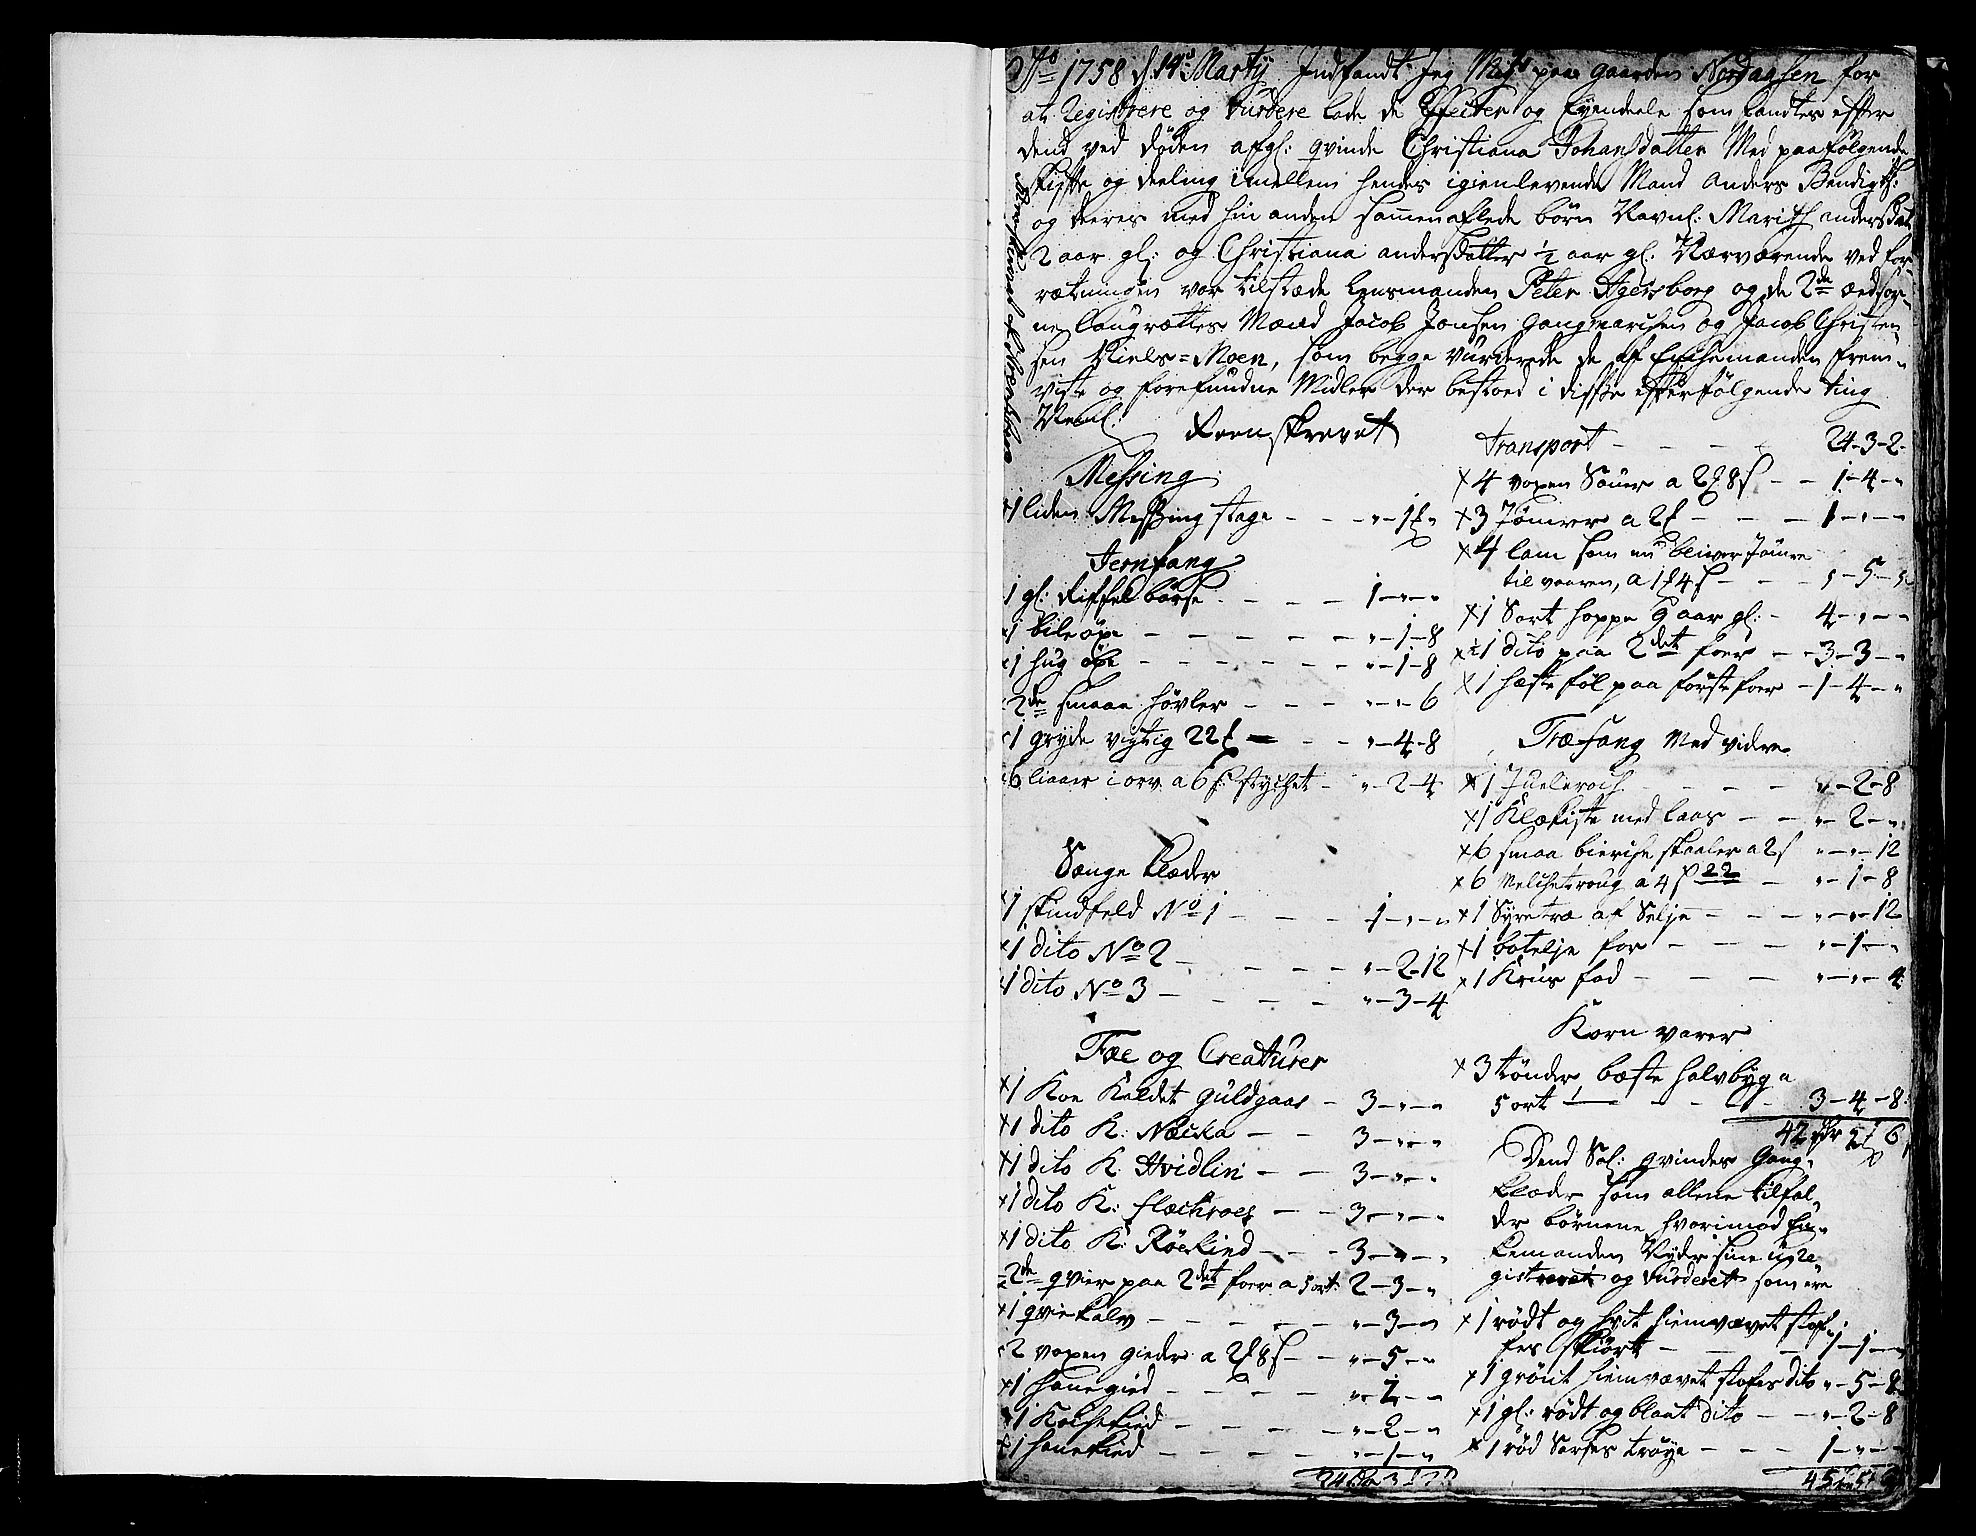 Ao 1758 d: 14de Martÿ Indfandt Jeg Mig paa gaarden Nordaasen for
at Registrere og Vurdere lade de Effecter og Eyendeele som fandtes efter
dend ved døden afgl: qvinde Christiana Johansdatter Med paafølgende
skifte og deeling imellem hendes igienlevende Mand Anders Bendigts:
og deres med hin anden sammenaflede børn Navnl: Marith andersdat
2 aar gl: og Christiana andersdatter ½ aar gl: Nærværende ved for-
rætningen var tilstæde Lensmanden Peter Agersborg og de 2de Eedsor-
ne Laugrættes Mænd Jacob Jonsen Gangmarchen og Jacob Christen-
sen Niels=Moen, som begge vurderede de af Enchemanden frem-
viste og forefundne Midler der bestoed i disse efterfølgende ting
Navnl:
Reenskrevet
Messing
+1 liden Messing stage - - - „-1 „
Jernfang
1 gl: Riffel børse - - - - 1-„-„
+1 bile øxe - - - - - „-1-8
+1 hug øxe - - - - - „-1-8
+2de smaae høvler - - - „-„-6
+1 gryde vigtig 22 - - „-4-8
+6 liaaer i orv a 6 s: stychet - „-2-4
Sænge klæder
+1 skindfeld No 1 - - - - 1-„-„
+1 dito No 2 - - - - „-2-12
+1 dito No 3 - - - - „-3-4
Fæe og Creaturer
+1 Koe Kaldet Guldgaas - 3-„-„
+1 dito K: Næcka - - 3-„-„
+1 dito K: Hvidlin - - 3-„-„
+1 dito K: flechroes - - 3-„-„
+1 dito K: Røekind - - 3-„-„
2de qvier paa 2det foer a 5 ort 2-3-„
+1 qviekalv - - - - „-3-„
2 voxen gieder a 2 8 s - - „-5-„
+1 hanegied - - - - „-2-„
+1 - - - - „-2-„
+1 hanekied - - - - „-1-„
24 3 2
Transport - - - - 24-3-2
+4 voxen Souer a 2 8 s - - 1-4-„
+3 Jømrer a 2 - - - 1-„-„
+4 lam som nu bliver Jømre
til vaaren, a 1 4 s - - - „-5-„
+1 Sort hoppe 9 aar gl: - 4-„-„
+1 dito paa 2det foer - - 3-3-„
+1 hæste føl paa første foer - 1-4-„
Træfang Med vidre
+1 - - - - „-2-8
+1 Klækiste med laas - - „-2-„
+6 smaa bierche skaaler a 2 s „-„-12
+6 Melchetroug a 4 s 22 - „-1-8
+1 Syretræ af Selje - - - „-„-12
+1 botelje for - - - „-1-„
+1 Krus fad - - - „-„-4
Korn varer
+3 tønder bæste halvbÿg a
5 ort - - - - 3-4-8
42 2 6
Dend Sal: qvindes Gang-
klæder som allene tilfal-
der børnene, hvorimod En-
kemanden Nyder sine ure-
gistreret og vurderet som ere
+1 rødt og hvit hiemvævet stof-
fes skiørt - - - 1-1-„
+1 grønt hiemvævet stofes dito „-5-8
+1 gl: rødt og blaat dito - - „-2-8
+1 rød Sarses trøye - - - 1-„-„
45